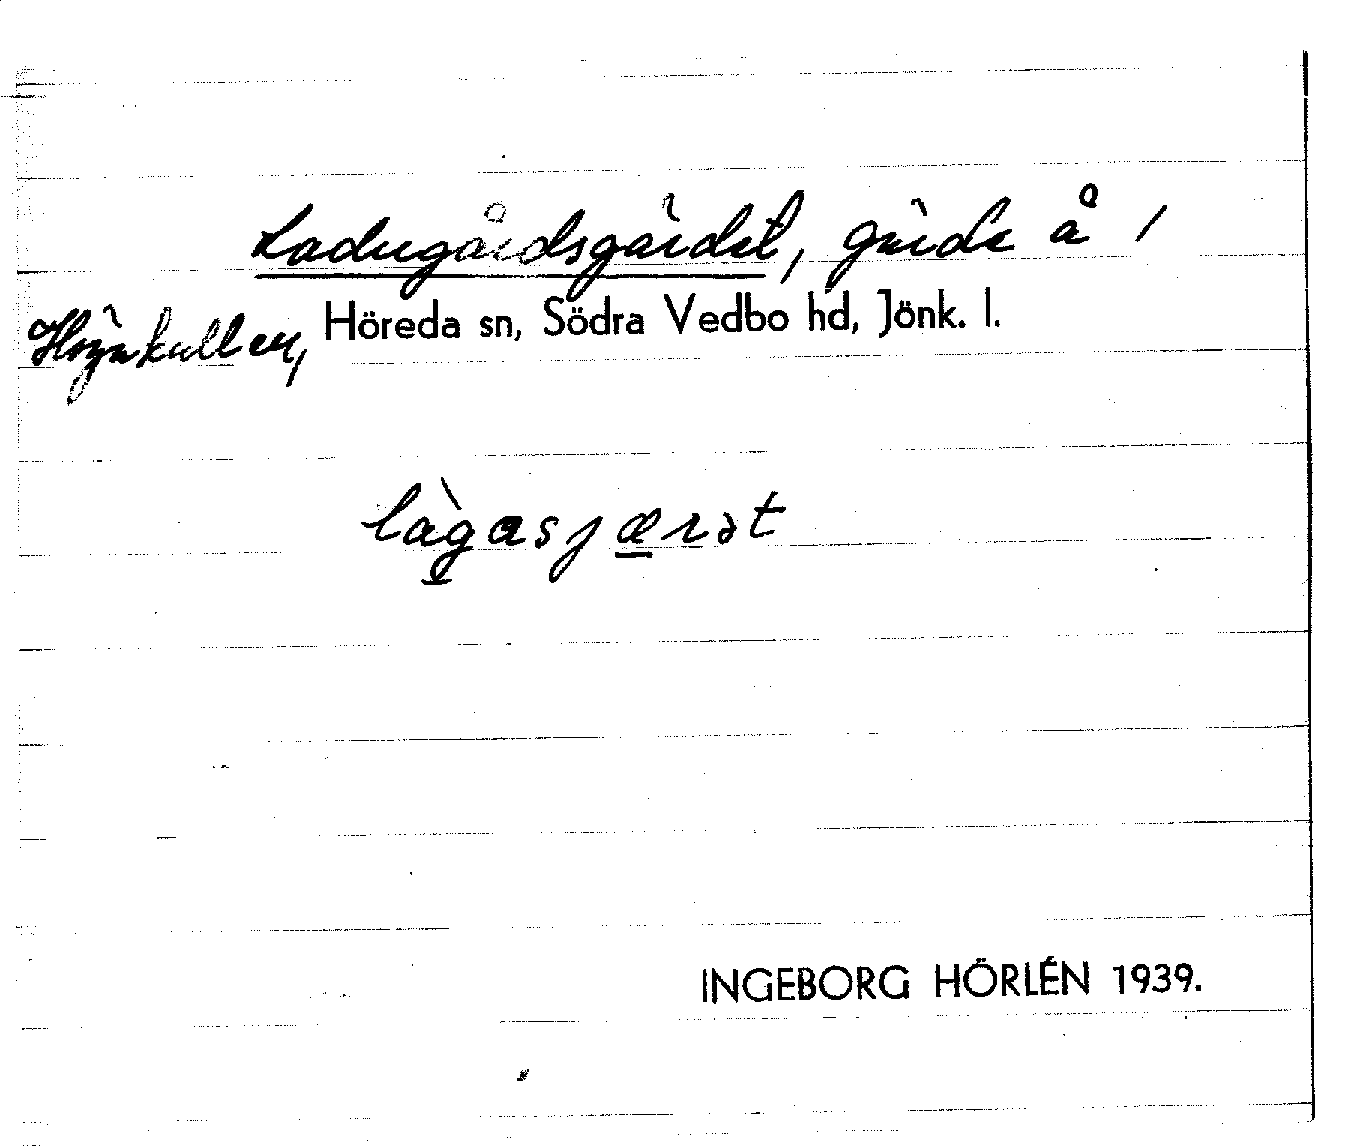 Ladugårdsgärdet, gärde å /
Högakullen, Höreda sn, Södra Vedbo hd, Jönk. l.
làgasjærət
INGEBORG HÖRLÉN 1939.